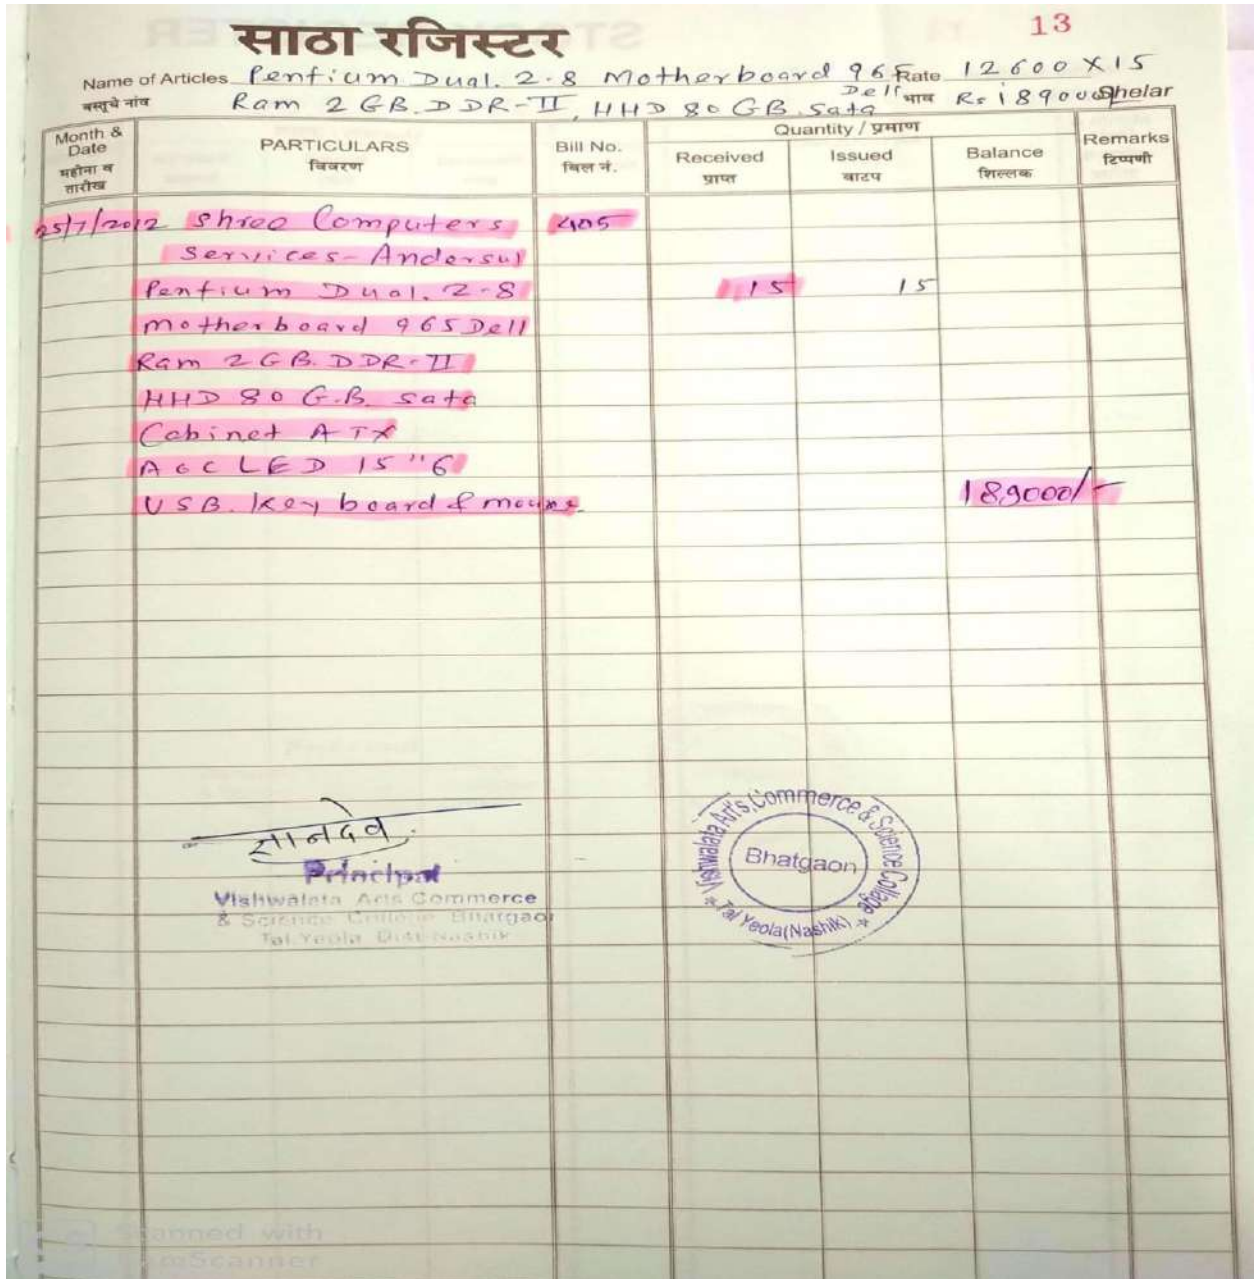 साठा रजिस्टर
13
Name of Articles Pentium Dual. 2.8 Motherboard 965 Rate 12600 X 15
वस्तुचे नांव Ram 2 GB. DDR-II, HHD 80 GB. Sata Dell भाव Rs 189000 Shelar
Month & Date PARTICULARS Bill No. Quantity / प्रमाण Remarks
महीना व तारीख विवरण बिल नं. Received Issued Balance टिप्पणी
प्राप्त वाटप शिल्लक
25/7/2012 Shree Computers 405
Services - Andersul
Pentium Dual. 2-8 15 15
Motherboard 965 Dell
Ram 2 GB. DDR-II
HHD 80 G.B. Sata
Cabinet ATX
AOC LED 15"6
USB. Key board & mouse 189000/-
Principal
Vishwalata Arts Commerce
& Science College Bhatgaon
Tal. Yeola Dist-Nashik
Vishwalata Art's, Commerce & Science College
Bhatgaon
Tal Yeola (Nashik)
Scanned with
CamScanner